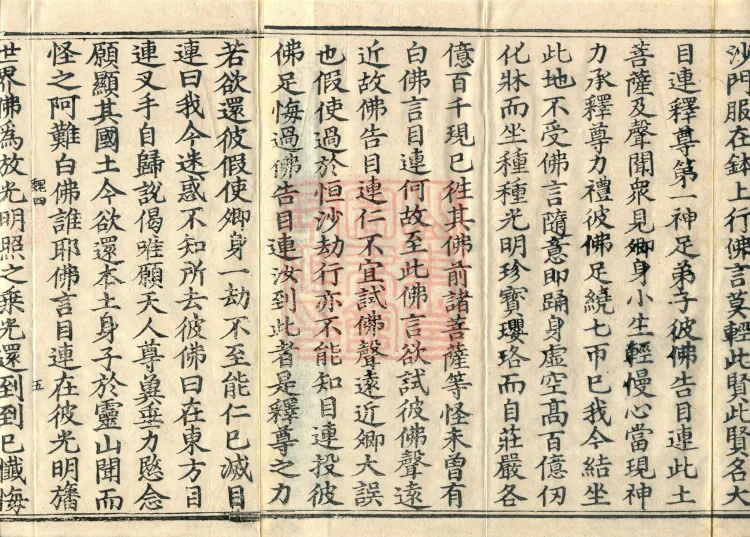 沙門服在鉢上行佛言莫輕此賢此賢名大
目連釋尊第一神足弟子彼佛告目連此土
菩薩及聲聞衆見卿身小生輕慢心當現神
力承釋尊力禮彼佛足繞七帀已我今結坐
此地不受佛言隨意即踊身虛空高百億仞
化牀而坐種種光明珍寶瓔珞而自莊嚴各
億百千現已徃其佛前諸菩薩等怪未曾有
白佛言目連何故至此佛言欲試彼佛聲遠
近故佛告目連仁不宜試佛聲遠近卿大誤
也假使過於恒沙劫行亦不能知目連投彼
佛足悔過佛告目連汝到此者是釋尊之力
若欲還彼假使卿身一劫不至能仁已滅目
連曰我今迷惑不知所去彼佛曰在東方目
連叉手自歸說偈唯願天人尊兾垂力愍念
願顯其國土今欲還本土身子於靈山聞而
怪之阿難白佛誰耶佛言目連在彼光明旛
四 五
世界佛為放光明照之乗光還到到已懺悔